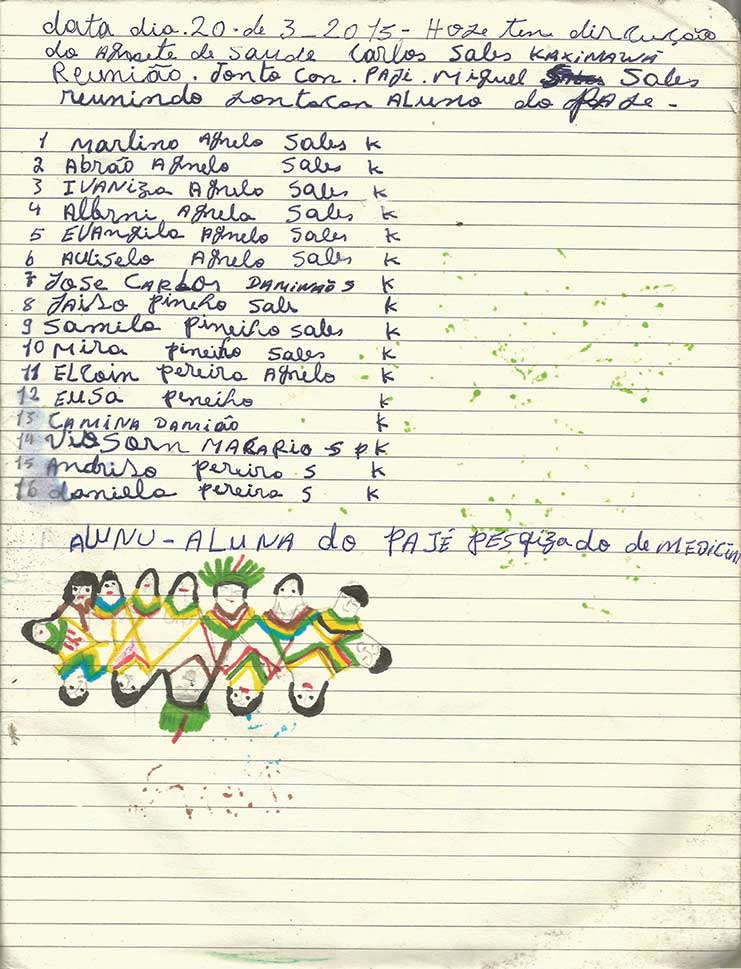 data dia.20.de 3_2015- Hoze tem dircução
do Agnete de Saude Carlos Sales KAXIMAWÁ
Reunião. Jonto con. PAJI. Miguel Sales
reunindo zontocon ALUNO do PAJE-
1 Marlino Agnelo Sales K
2 Abrão Agnelo Sales K
3 IVANIZA Agnelo Sales K
4 Alberni Agnela Sales K
5 EVANgila Agnelo Sales K
6 AULiselo Agnelo Sales K
7 JOSE CARLOS DAMINHÃO S K
8 Jaiso pineho Sale K
9 Samila Pineiho Sales K
10 Mira pineiho Sales K
11 ELCoin pereira Agnelo K
12 Eusa peneiho K
13 CAMINA DAMIÃO K
14 MACARIO S P K
15 Andriso pereiro S K
16 daniela pereira S K
ALUNU-ALUNA do PAJÉ PESQizado de MEDICIN